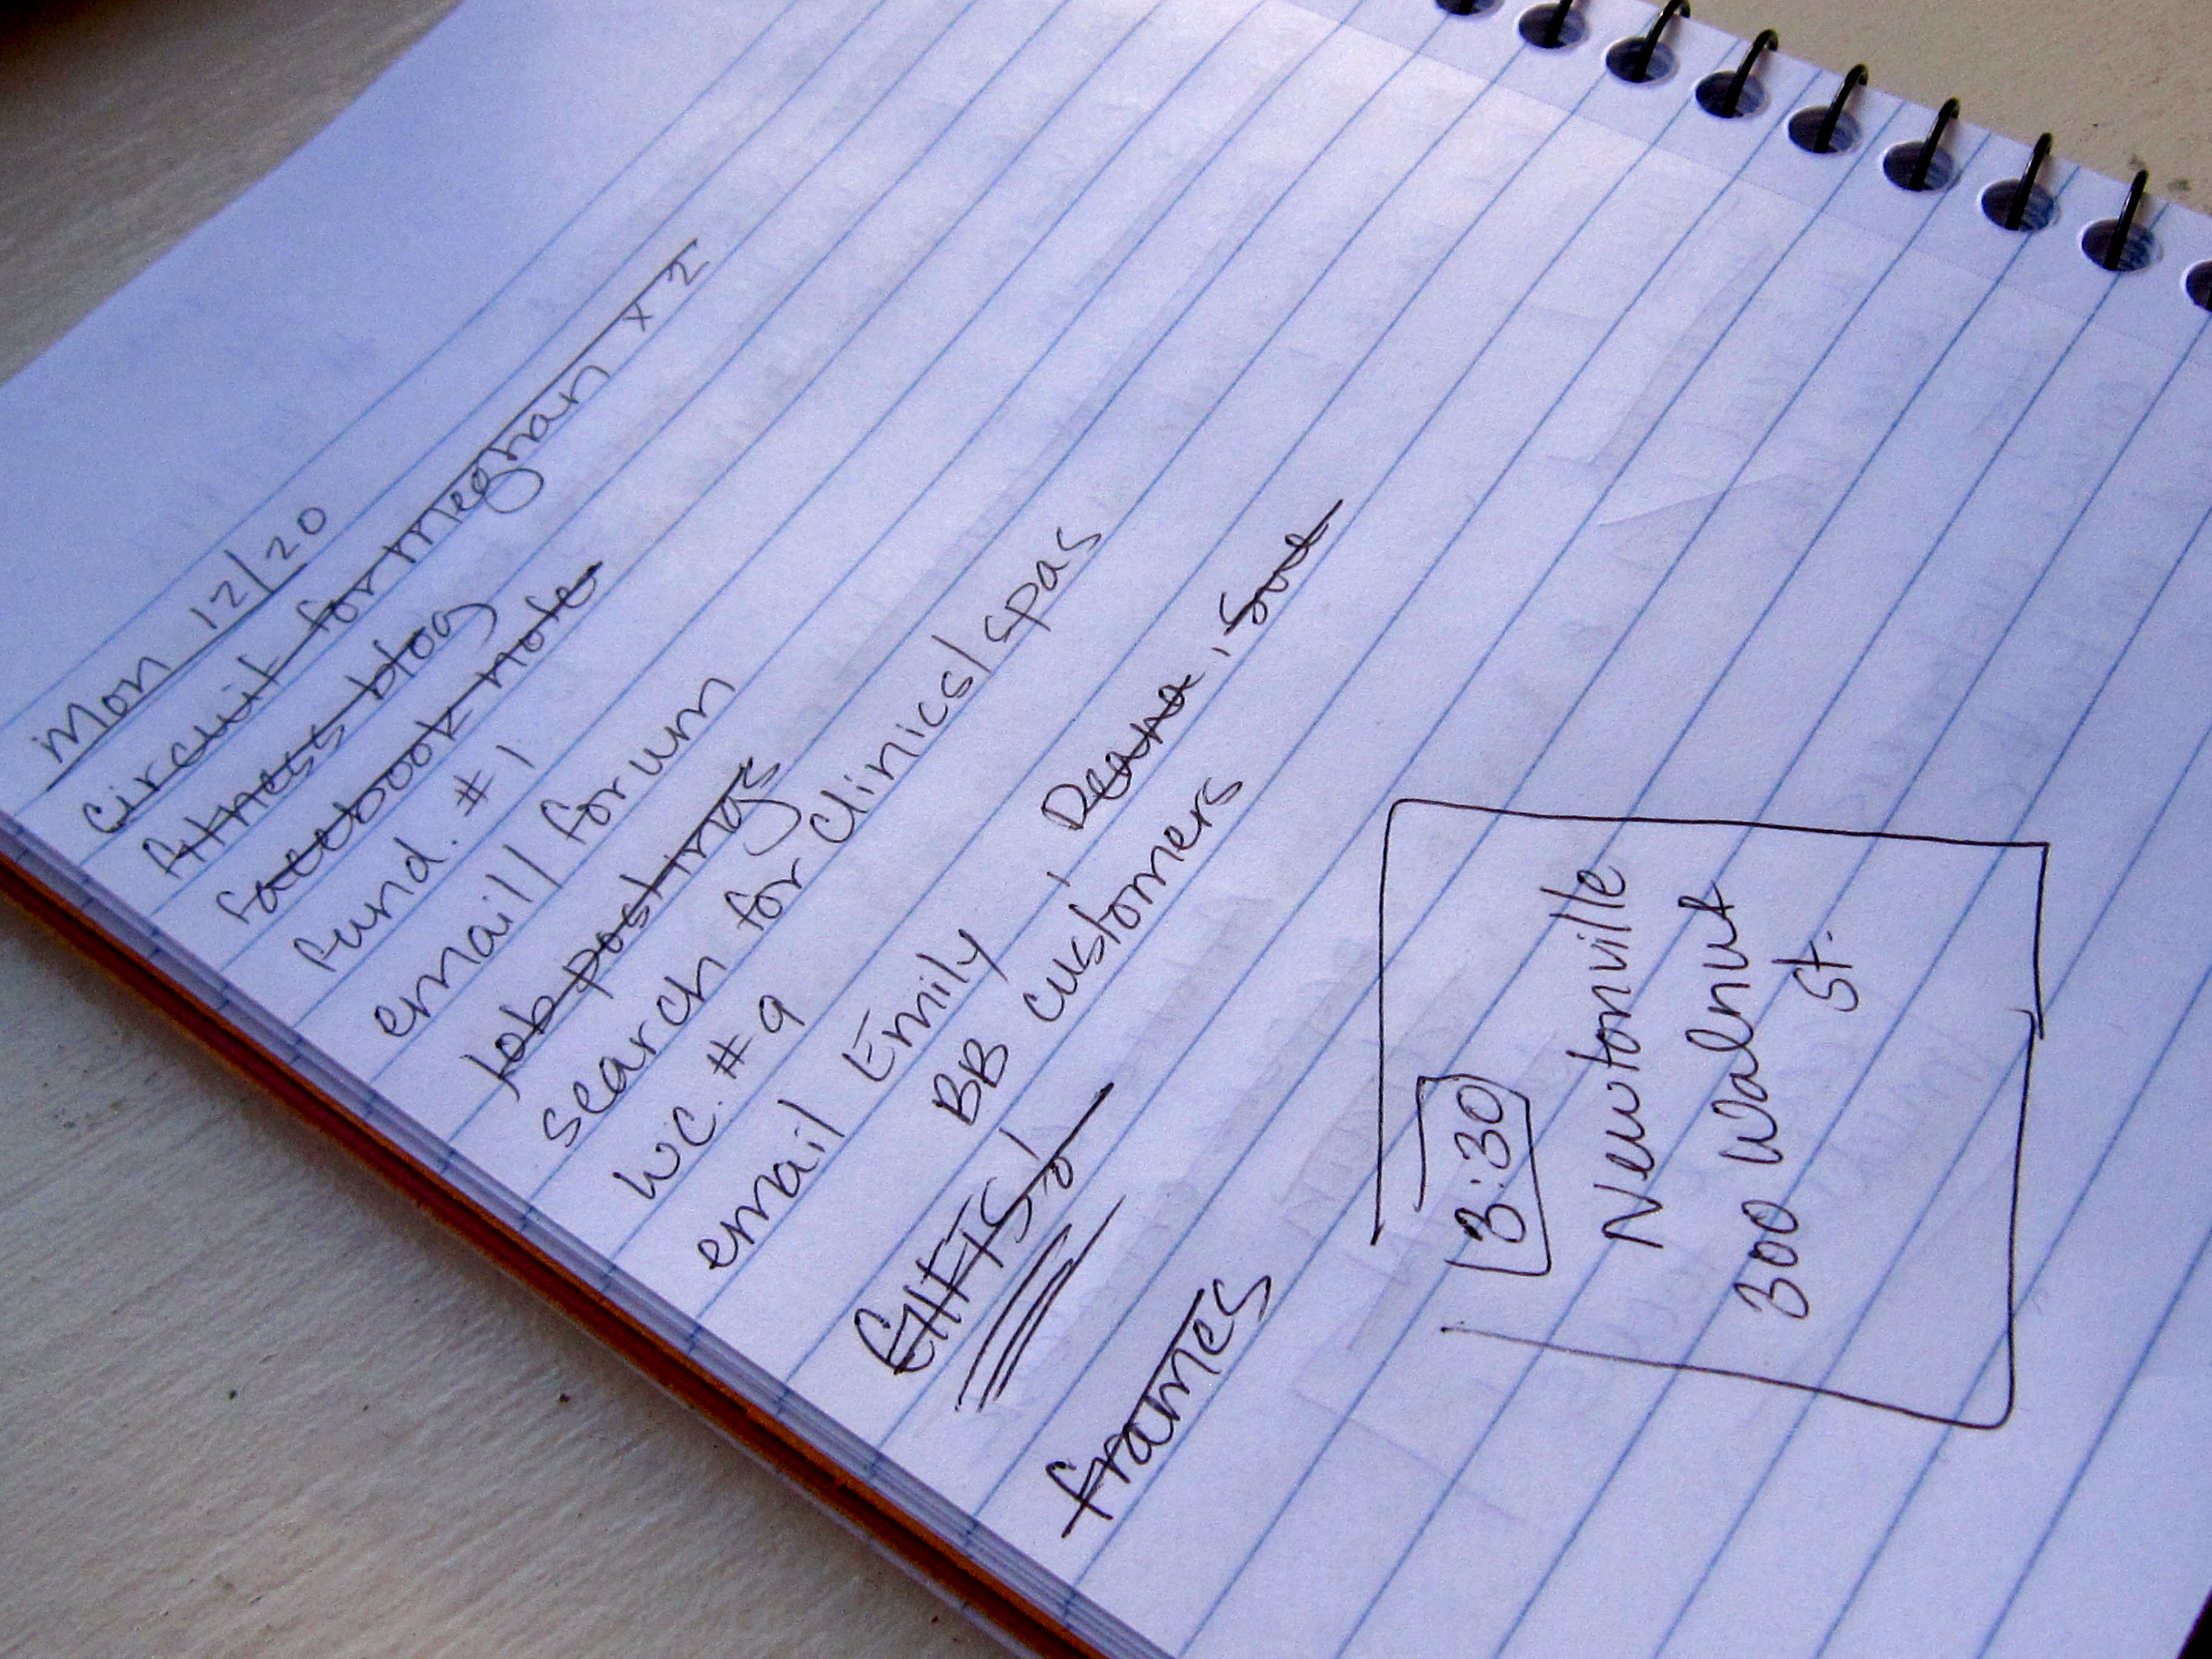 Mon 12/20
circuit for meghan x 2
fitness blog
facebook note
fund. #1
emaill forum
job postings
search for clinics/spas
wc. #9
email Emily, Deana,
BB customers
GIFTS!
frames
3:30
Newtonville
300 Walnut
St.